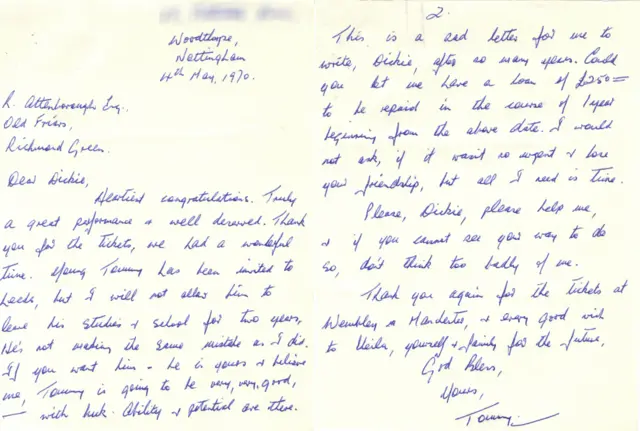 Woodthorpe,
Nottingham
4th May, 1970.
R. Attenborough Esq.,
Old Friars,
Richmond Green.
Dear Dickie,
Heartiest congratulations. Truly
a great performance & well deserved. Thank
you for the tickets, we had a wonderful
time. Young Tommy has been invited to
Leeds, but I will not allow him to
leave his studies & school for two years,
He's not making the same mistake as I did.
If you want him - he is yours & believe
me, Tommy is going to be very, very, good,
— with luck. Ability & potential are there.
2.
This is a sad letter for me to
write, Dickie, after so many years. Could
you let me have a loan of £250=
to be repaid in the course of 1 year
beginning from the above date. I would
not ask, if it wasn't so urgent & lose
your friendship, but all I need is time.
Please, Dickie, please help me,
& if you cannot see your way to do
so, don't think too badly of me.
Thank you again for the tickets at
Wembley & Manchester, & every good wish
to Sheila, yourself & family for the future,
God Bless,
Yours,
Tommy.